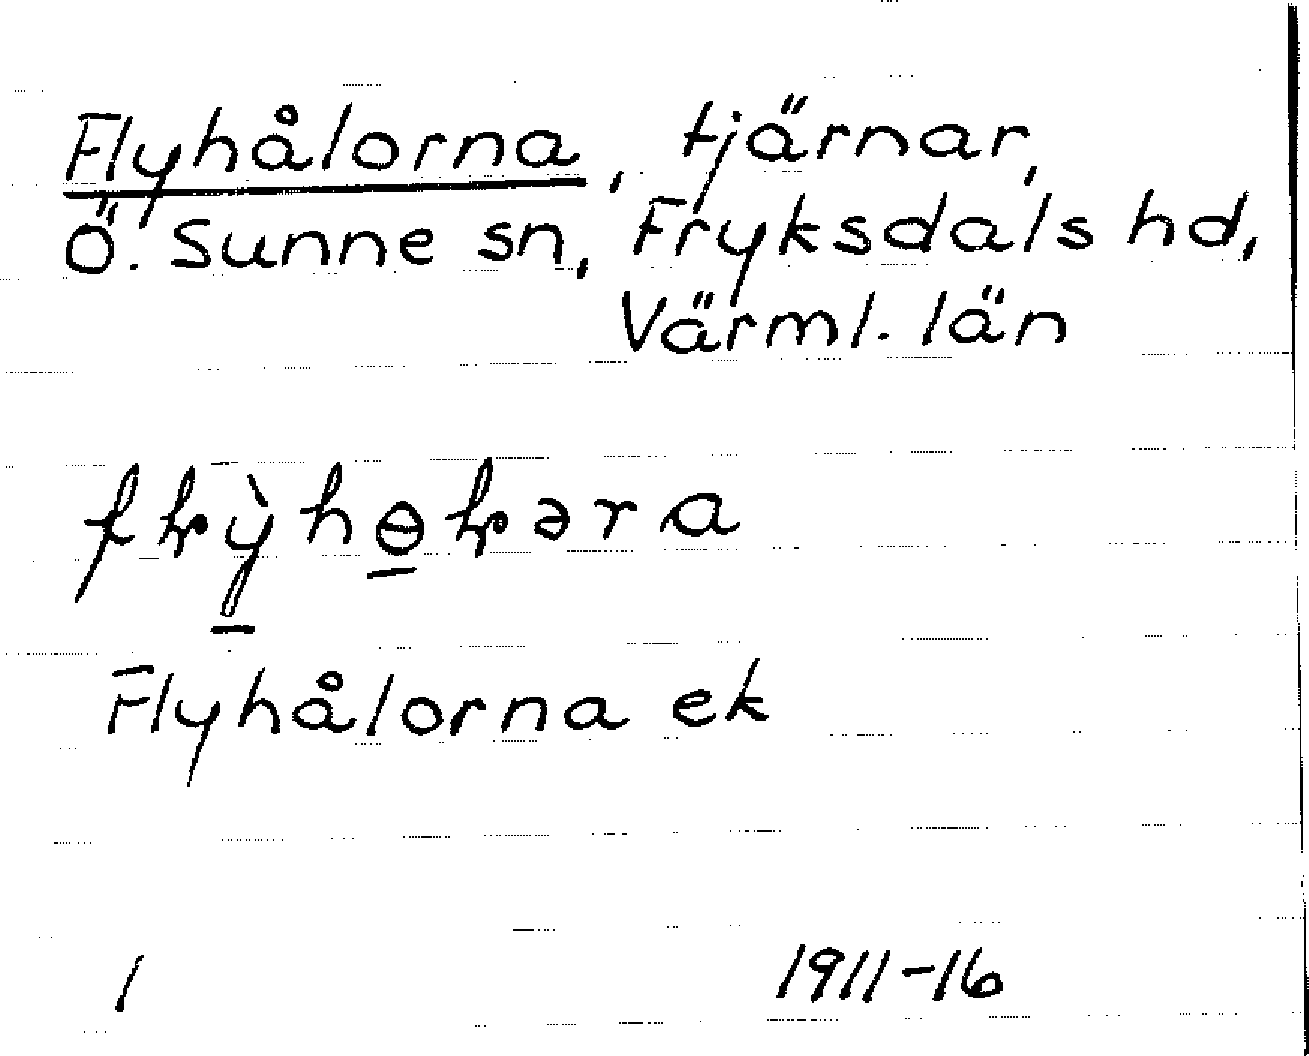 Flyhålorna, tjärnar,
Ö. Sunne sn, Fryksdals hd,
Värml. län
Flyhålorna ek
1 1911-16